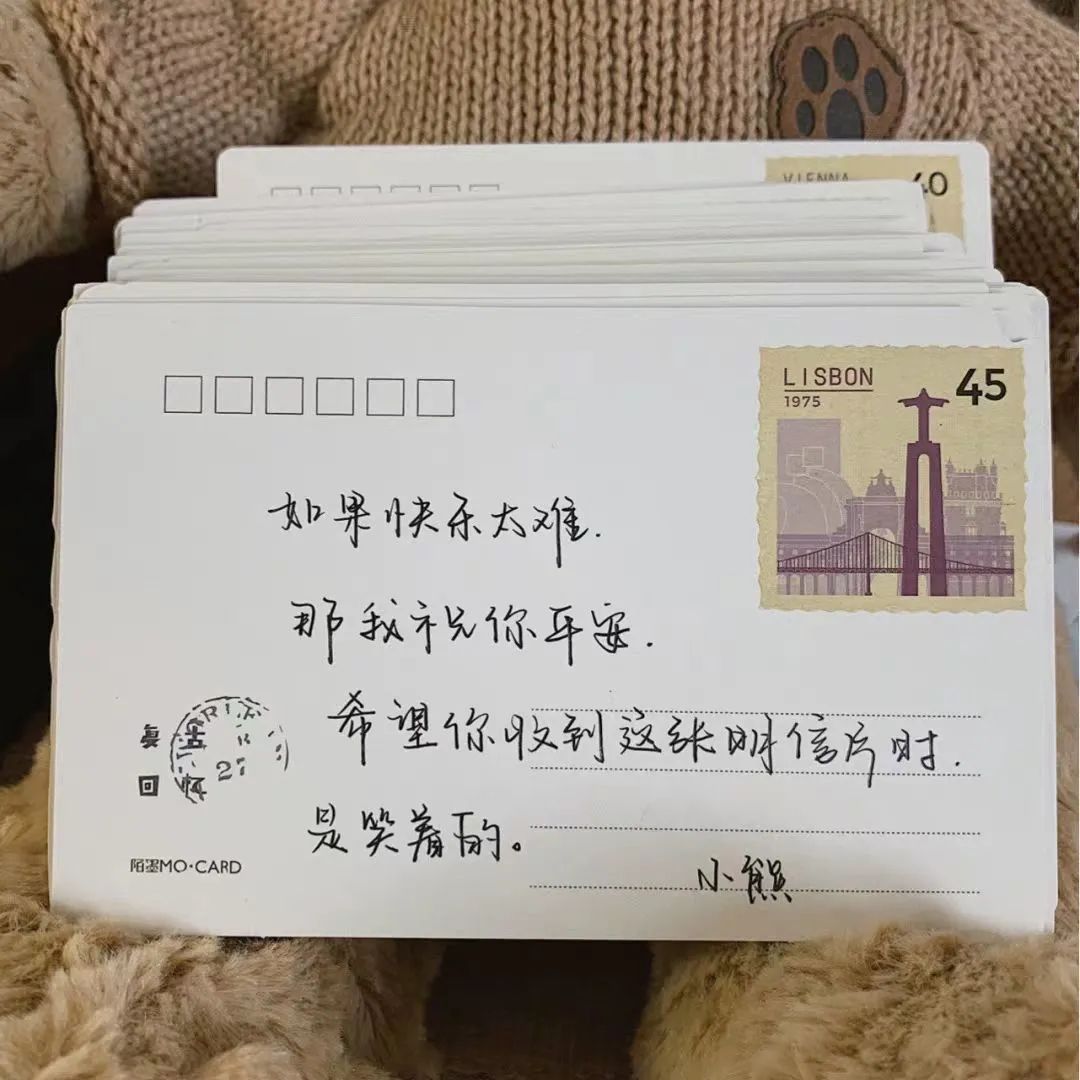 40
LISBON
1975
45
如果快乐太难.
那我祝你平安.
希望你收到这张明信片时.
是笑着的。
小熊
27
回
陌墨MO·CARD